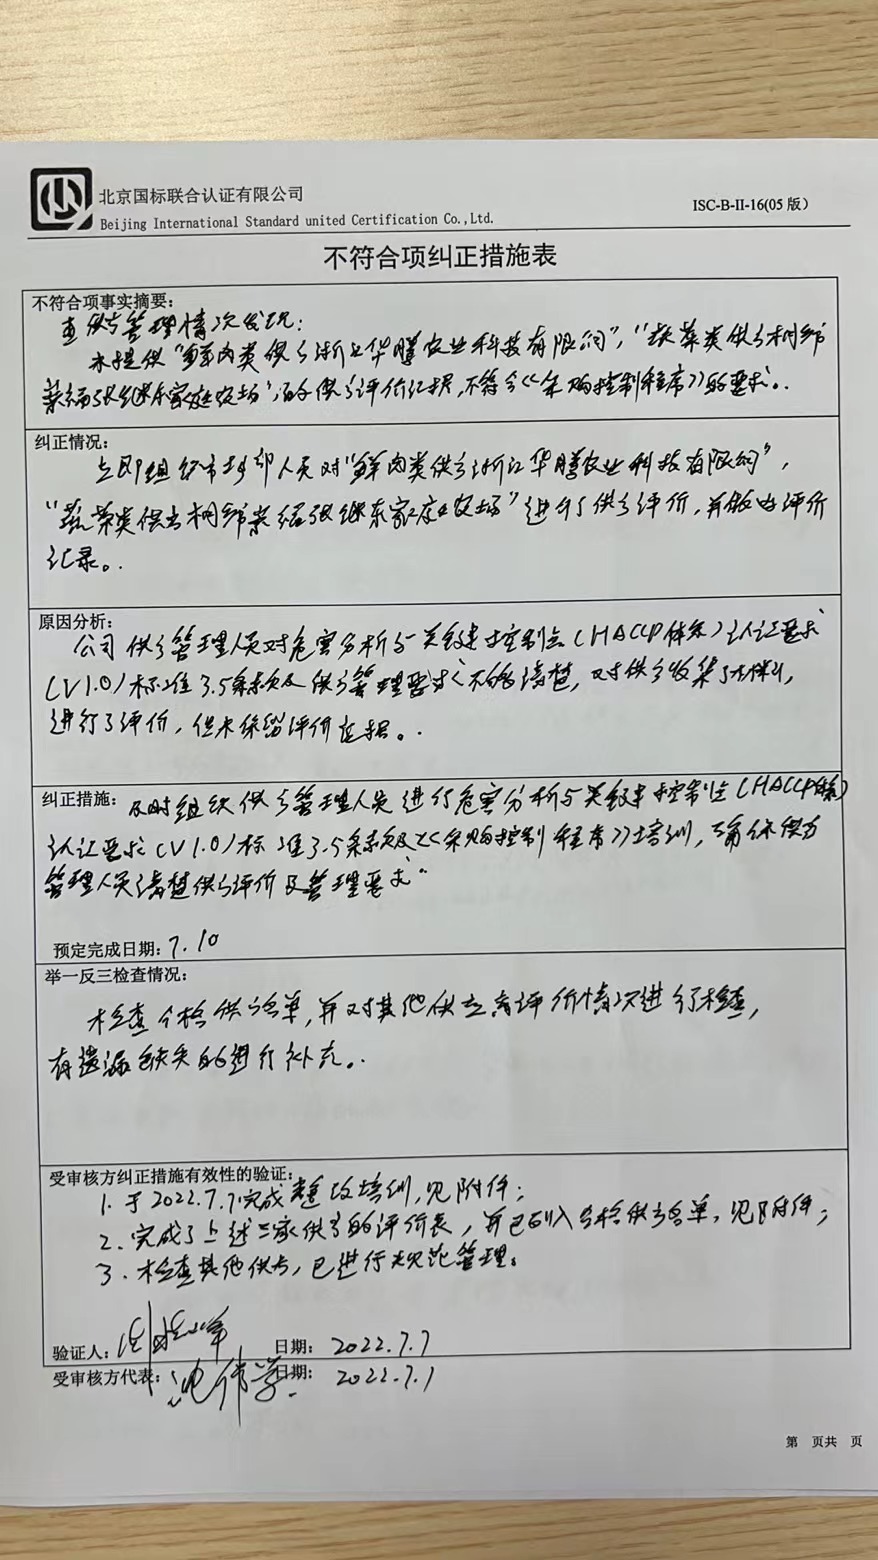 北京国标联合认证有限公司
Beijing International Standard united Certification Co.,Ltd.
ISC-B-II-16(05版)
不符合项纠正措施表
不符合项事实摘要:
查供方管理情况发现:
未提供“鲜肉类供方浙江华腾农业科技有限公司”,“蔬菜类供方桐乡市
张继东家庭农场”的供方评价证据,不符合《采购控制程序》的要求。
纠正情况:
立即组织市场部人员对“鲜肉类供方浙江华腾农业科技有限公司”,
“蔬菜类供方桐乡市张继东家庭农场”进行了供方评价,并做出评价
记录。
原因分析:
公司供方管理人员对危害分析与关键控制点(HACCP体系)认证要求
(V1.0)标准3.5条款及供方管理要求不够清楚,对供方收集了材料,
进行了评价,但未保留评价证据。
纠正措施:及时组织供方管理人员进行危害分析与关键控制点(HACCP体系)
认证要求(V1.0)标准3.5条款及《采购控制程序》培训,确保供方
管理人员清楚供方评价及管理要求。
预定完成日期:7.10
举一反三检查情况:
检查合格供方名单,并对其他供应商评价情况进行检查,
有遗漏缺失的进行补充。
受审核方纠正措施有效性的验证:
1. 于2022.7.7完成整改培训,见附件;
2. 完成了上述二家供方的评价表,并已列入合格供方名单,见附件;
3. 检查其他供方,已进行规范管理。
验证人: 日期: 2022.7.7
受审核方代表: 沈伟学 日期: 2022.7.7
第 页共 页